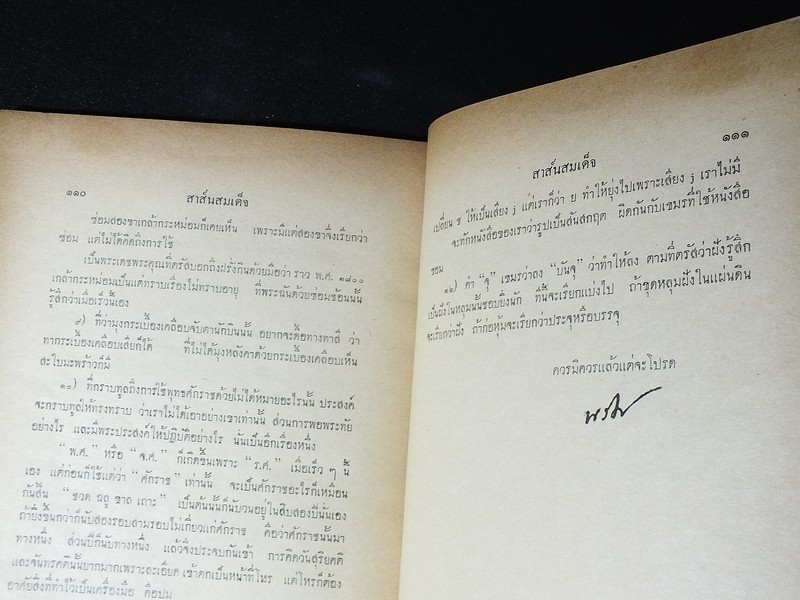 ๑๑๐
สาส์นสมเด็จ
ซ่อมสองขาเกล้ากระหม่อมก็เคยเห็น เพราะมีแต่สองขาจึงเรียกว่า
ซ่อม แต่ไม่ได้คิดถึงการใช้
เป็นพระเดชพระคุณที่ตรัสบอกถึงฝรั่งกินด้วยมือว่า ราว พ.ศ. ๑๘๐๐
เกล้ากระหม่อมเป็นแต่ทราบเรื่องไม่ทราบอายุ ที่พระฉันด้วยซ่อมช้อนนั้น
รู้สึกว่าเมื่อเร็วนี้เอง
๙) ที่ว่ามุงกระเบื้องเคลือบจับตานักบินนั้น อยากจะต่อทางทาสี ว่า
ทากระเบื้องเคลือบเสียก็ได้ ที่ไม่ได้มุงหลังคาด้วยกระเบื้องเคลือบเห็น
สะใบมะพร้าวก็มี
๑๐) ที่กราบทูลถึงการใช้พุทธศักราชด้วยไม่ได้หมายอะไรนั้น ประสงค์
จะกราบทูลให้ทรงทราบ ว่าเราไม่ได้เอาอย่างเขาเท่านั้น ส่วนการพอพระทัย
อย่างไร และมีพระประสงค์ให้ปฏิบัติอย่างไร นั่นเป็นอีกเรื่องหนึ่ง
“พ.ศ.” หรือ “จ.ศ.” ก็เกิดขึ้นเพราะ “ร.ศ.” เมื่อเร็ว ๆ นี้
เอง แต่ก่อนก็ใช้แต่ว่า “ศักราช” เท่านั้น จะเป็นศักราชอะไรก็เหมือน
กันสิ้น “ชวด ฉลู ขาล เถาะ” เป็นต้นนั้นก็นับวนอยู่ในสิบสองปีนั่นเอง
ถ้ายิ่งขึ้นกว่าก็นับสองรอบสามรอบไม่เกี่ยวแก่ศักราช คือว่าศักราชนั้นมา
ทางหนึ่ง ส่วนปีก็นับทางหนึ่ง แล้วจึงประจบกันเข้า การคิดวันสุริยคติ
และจันทรคตินั้นยากมากเพราะละเอียด เข้าตกเป็นหน้าที่โหร แต่โหรก็ต้อง
อาศัยสิ่งที่ทำไว้เป็นเครื่องมือ คือปูม
๑๑๑
สาส์นสมเด็จ
เปลี่ยน ช ให้เป็นเสียง j แต่เราก็ว่า ย ทำให้ยุ่งไปเพราะเสียง j เราไม่มี
จะทักหนังสือของเราว่ารูปเป็นสันสกฤต ผิดกันกับเขมรที่ใช้หนังสือ
ขอม
๑๒) คำ “จุ” เขมรว่าลง “บันจุ” ว่าทำให้ลง ตามที่ตรัสว่าฝังรู้สึก
เป็นฝังในหลุมนั้นชอบยิ่งนัก ทีนี้จะเรียกแบ่งไป ถ้าขุดหลุมฝังในแผ่นดิน
จะเรียกว่าฝัง ถ้าก่อหุ้มจะเรียกว่าประจุหรือบรรจุ
ควรมิควรแล้วแต่จะโปรด